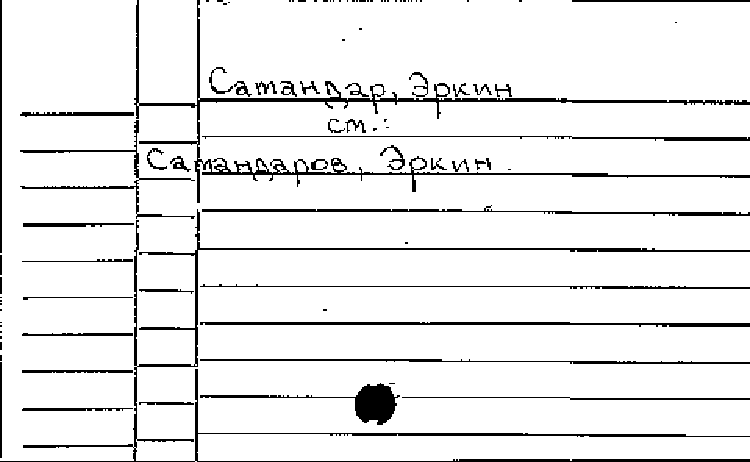 Самандар, Эркин
см.:
Самандаров, Эркин.